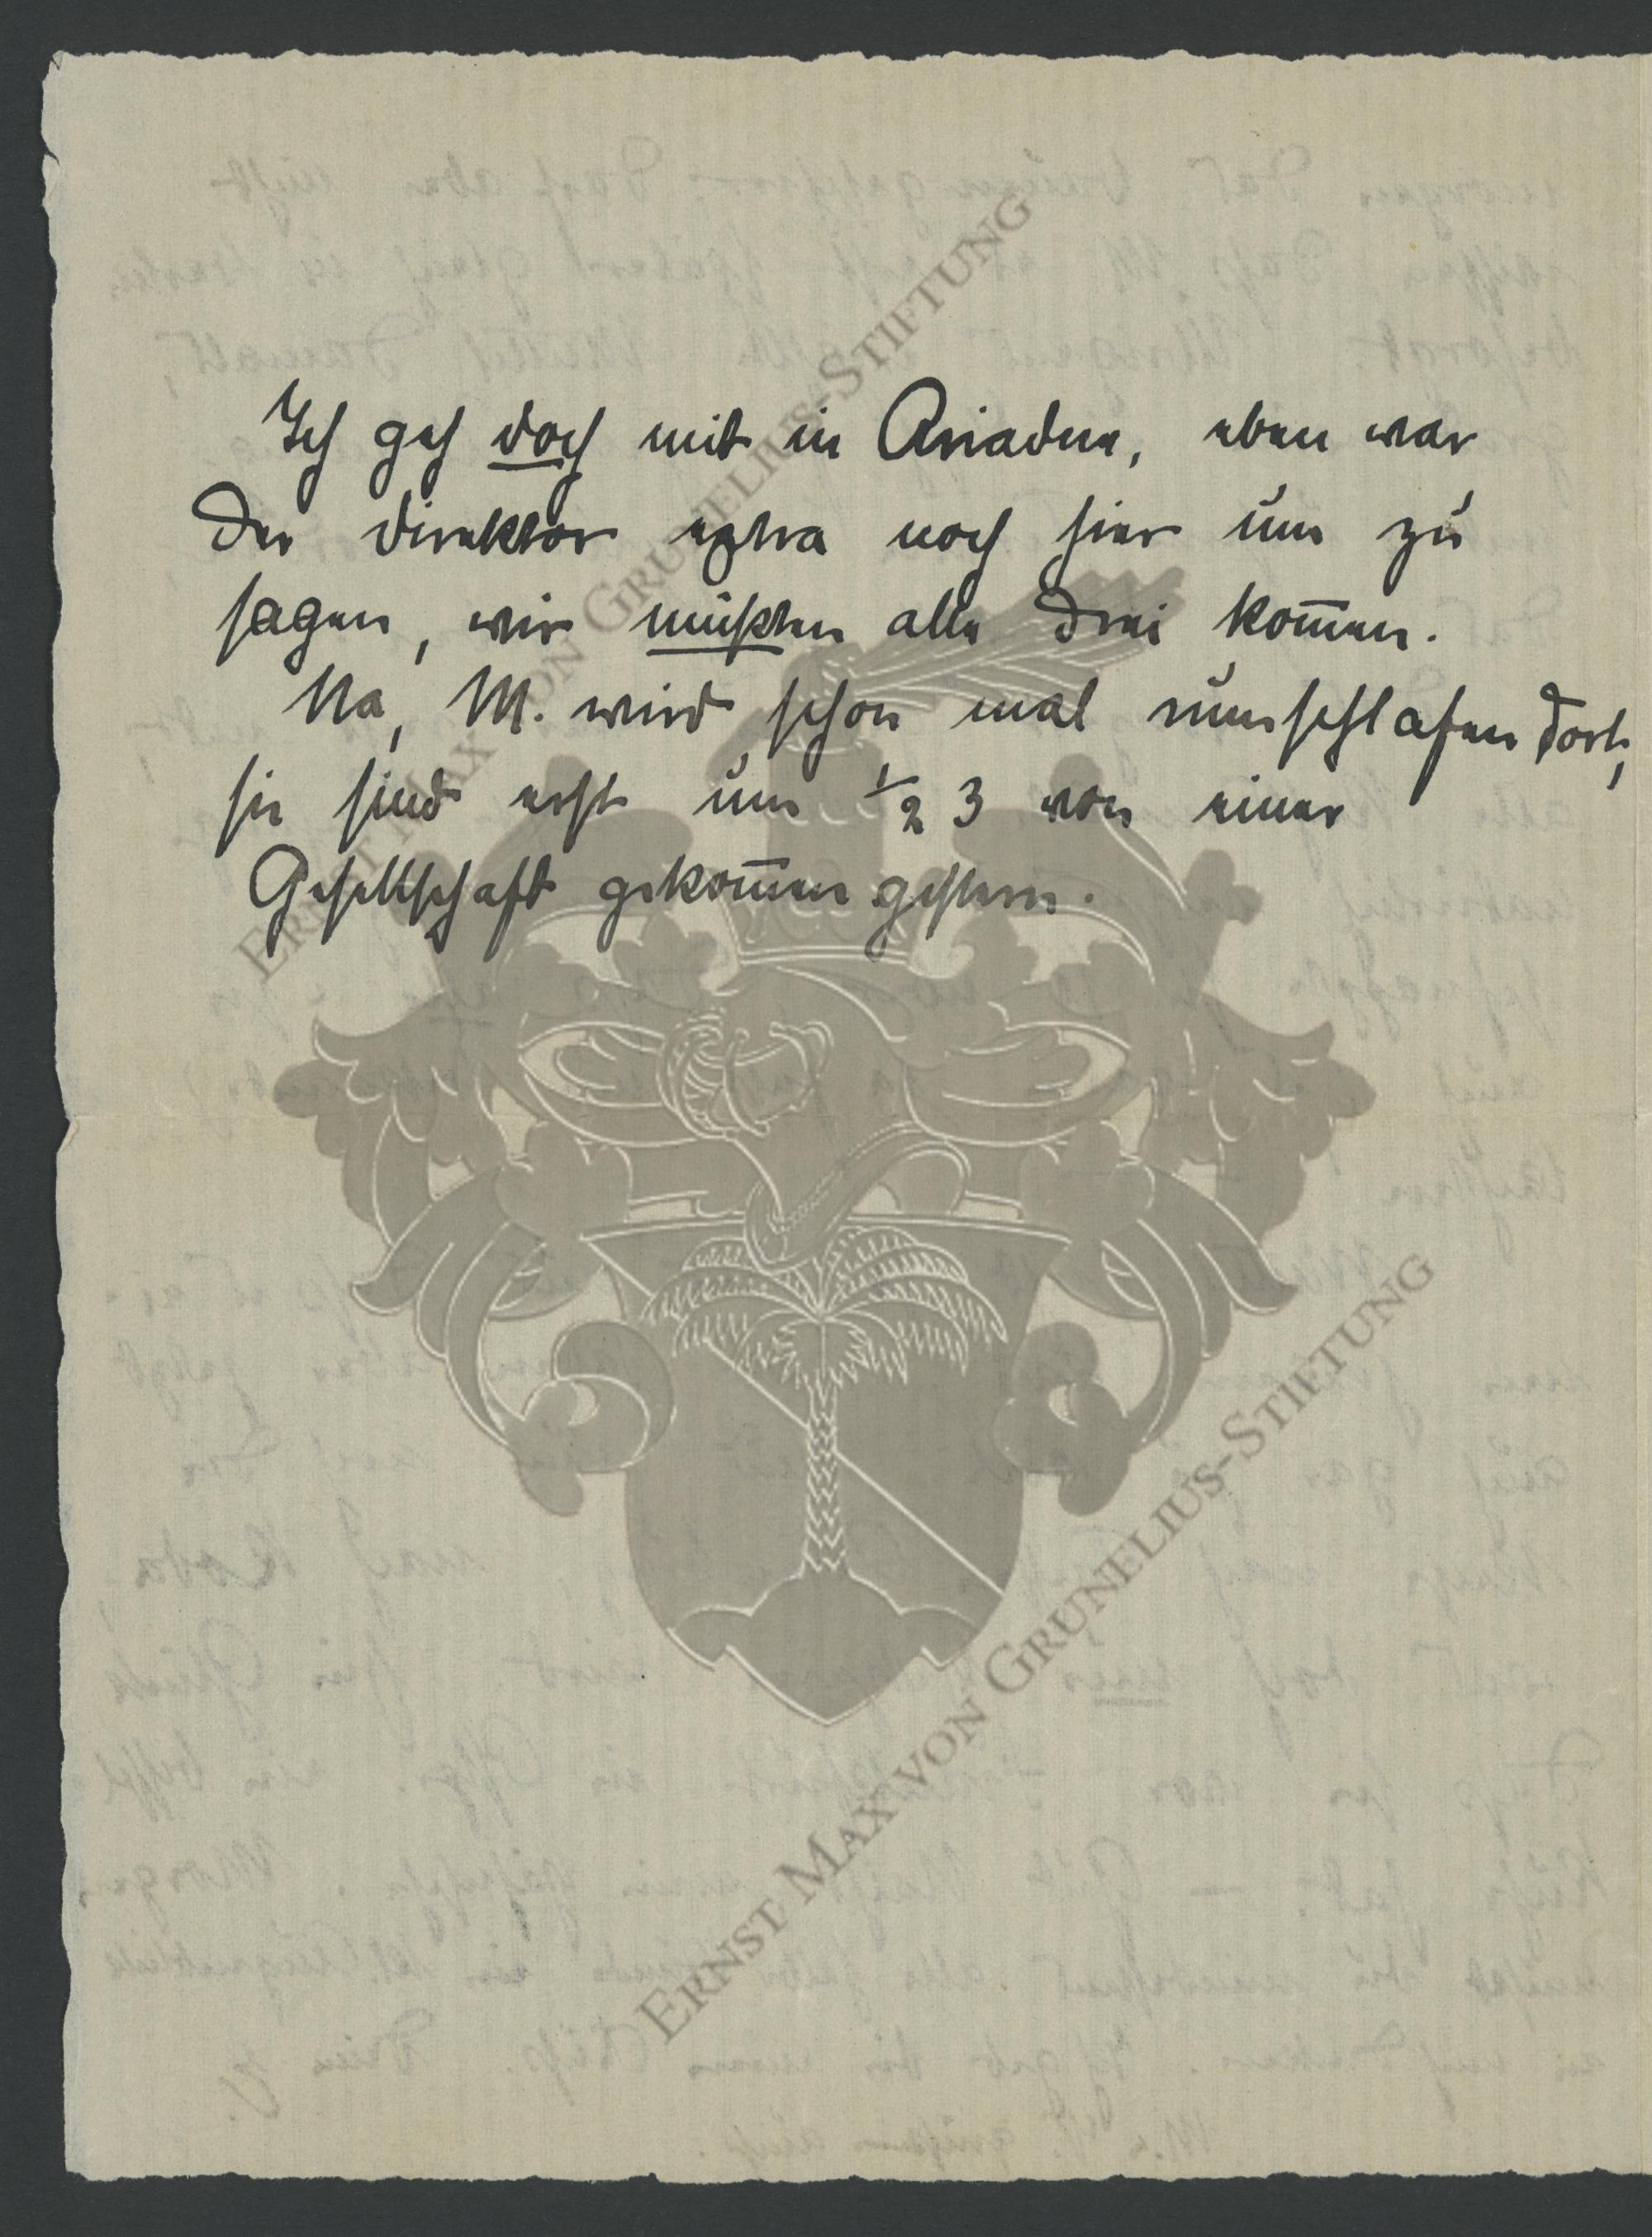 Ich geh doch mit in Ariadne, eben war
der Direktor extra noch hier um zu
sagen, wir müßten alle drei kom̄en.
Na, M. wird schon mal einschlafen dort,
sie sind erst um ½ 3 von einer
Gesellschaft gekom̄en gestern.
ERNST MAX VON GRUNELIUS-STIFTUNG
ERNST MAX VON GRUNELIUS-STIFTUNG